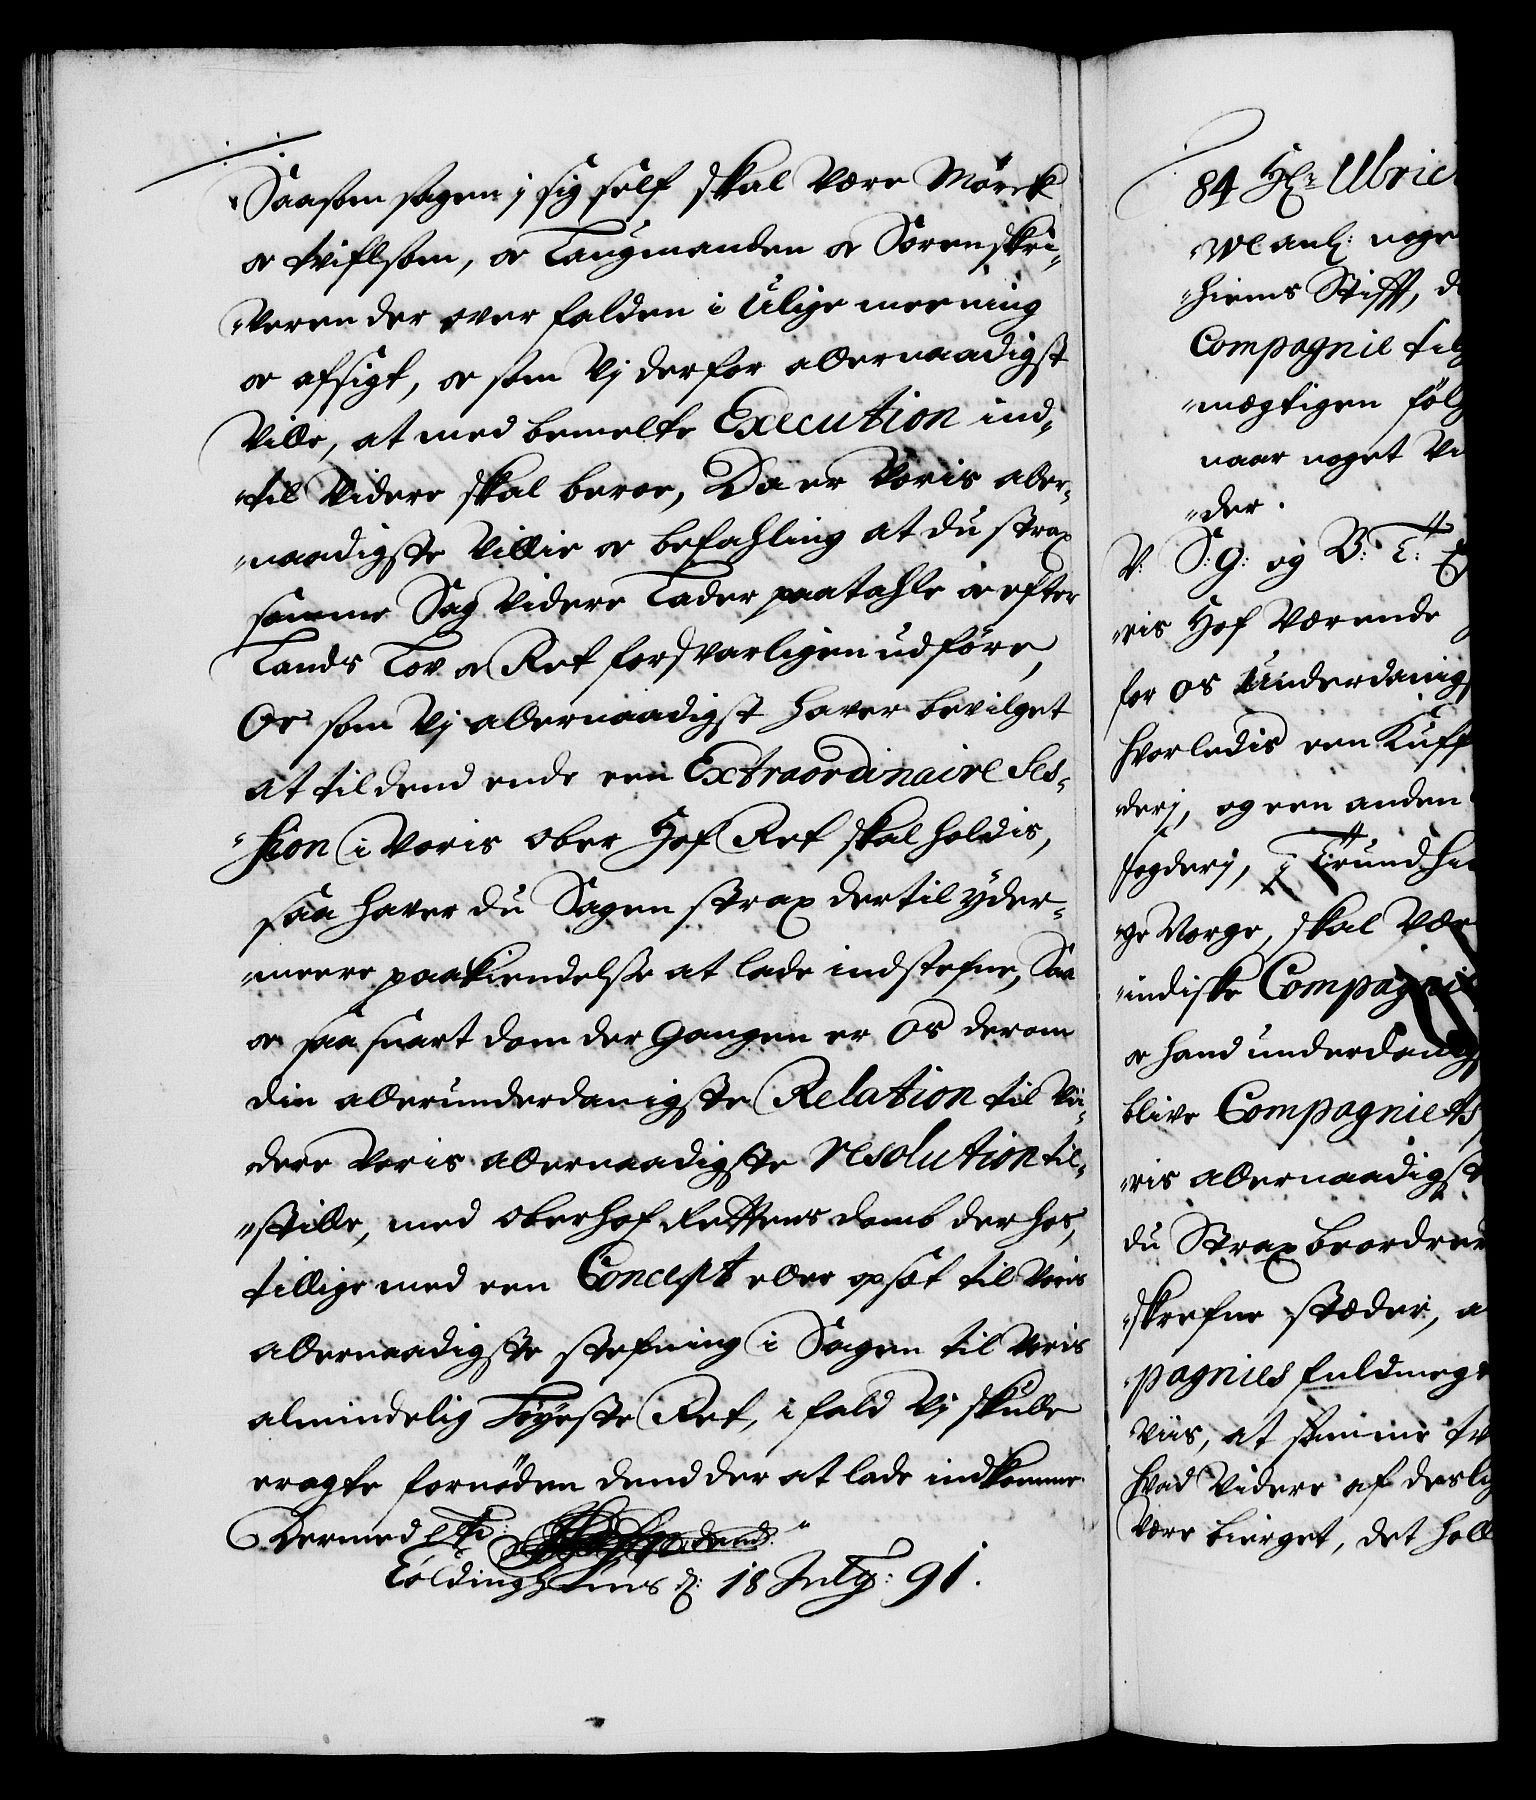 Saasom sagen i sig self skal være Mörck
oc tvifelsom, oc Laugmanden oc Sorenskri-
"veren der over falden i Ulige meening
oc afsigt, oc som Vi derfor allernaadigst
Ville, at med bemelte Execution ind-
"til Videre skal beroe, Da er Voris aller-
"naadigste Villie oc befahling at du strax
samme Sag Videre Lader paatahle oc efter
Lands Lov oc Ret forsvarligen udföre,
Oc som Vi allernaadigst haver bevilget
at til dend ende een Extraordinaire Ses-
"sion i Voris Ober Hof Ret skal holdis,
saa haver du Sagen strax dertil yder-
"meere paakiendelse at lade indstefne, Saa
oc saa snart dom der gangen er Os derom
din allerunderdanigste Relation til Vi-
dere Voris allernaadigste resolution til-
"stille, med Oberhof Rettens domb der hos,
tillige med een Concept eller opsat til Voris
allernaadigste stefning i Sagen til Voris
almindelig Höyeste Ret, i fald Vi skulle
eragte fornöden dend der at lade indkomme
Dermed etc:
Coldinghuus d: 18 July: 91.
84 Hr: Ulric
"Wl anl: noge
"hiems Stifft, d
Compagnie til
"mægtigen föl
naar noget Vi
"der.
V: S: G: og B: T: E
"ris Hof Værende
for os Underdanig
hvorledis een Kuff
derj, og een anden
fogderj, i Trundhie
ge Norge, skal Vær
"indiske Compagnie
oc hand underdanig
blive Compagniets
"ris allernaadigst
du Strax beordrer
"skrefne stæder, a
"pagnies fuldmegt
Viis, at samme tv
hvad Videre af deslig
Være bierget, det holl